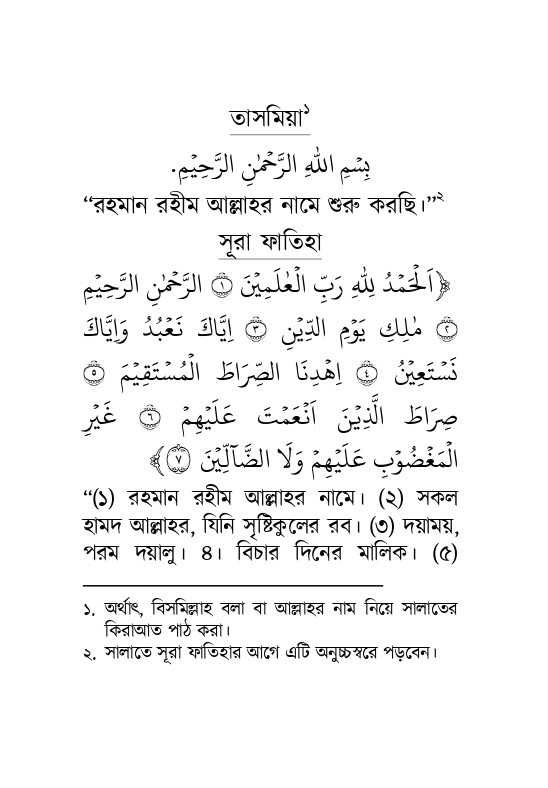 তাসমিয়া১
بِسْمِ اللهِ الرَّحْمٰنِ الرَّحِيْمِ.
“রহমান রহীম আল্লাহর নামে শুরু করছি।”২
সূরা ফাতিহা
﴿اَلْحَمْدُ لِلّٰهِ رَبِّ الْعٰلَمِيْنَ ۝١ الرَّحْمٰنِ الرَّحِيْمِ
۝٢ مٰلِكِ يَوْمِ الدِّيْنِ ۝٣ اِيَّاكَ نَعْبُدُ وَاِيَّاكَ
نَسْتَعِيْنُ ۝٤ اِهْدِنَا الصِّرَاطَ الْمُسْتَقِيْمَ ۝٥
صِرَاطَ الَّذِيْنَ اَنْعَمْتَ عَلَيْهِمْ ۝٦ غَيْرِ
الْمَغْضُوْبِ عَلَيْهِمْ وَلَا الضَّآلِّيْنَ ۝٧﴾
“(১) রহমান রহীম আল্লাহর নামে। (২) সকল
হামদ আল্লাহর, যিনি সৃষ্টিকুলের রব। (৩) দয়াময়,
পরম দয়ালু। ৪। বিচার দিনের মালিক। (৫)
১. অর্থাৎ, বিসমিল্লাহ বলা বা আল্লাহর নাম নিয়ে সালাতের
কিরাআত পাঠ করা।
২. সালাতে সূরা ফাতিহার আগে এটি অনুচ্চস্বরে পড়বেন।